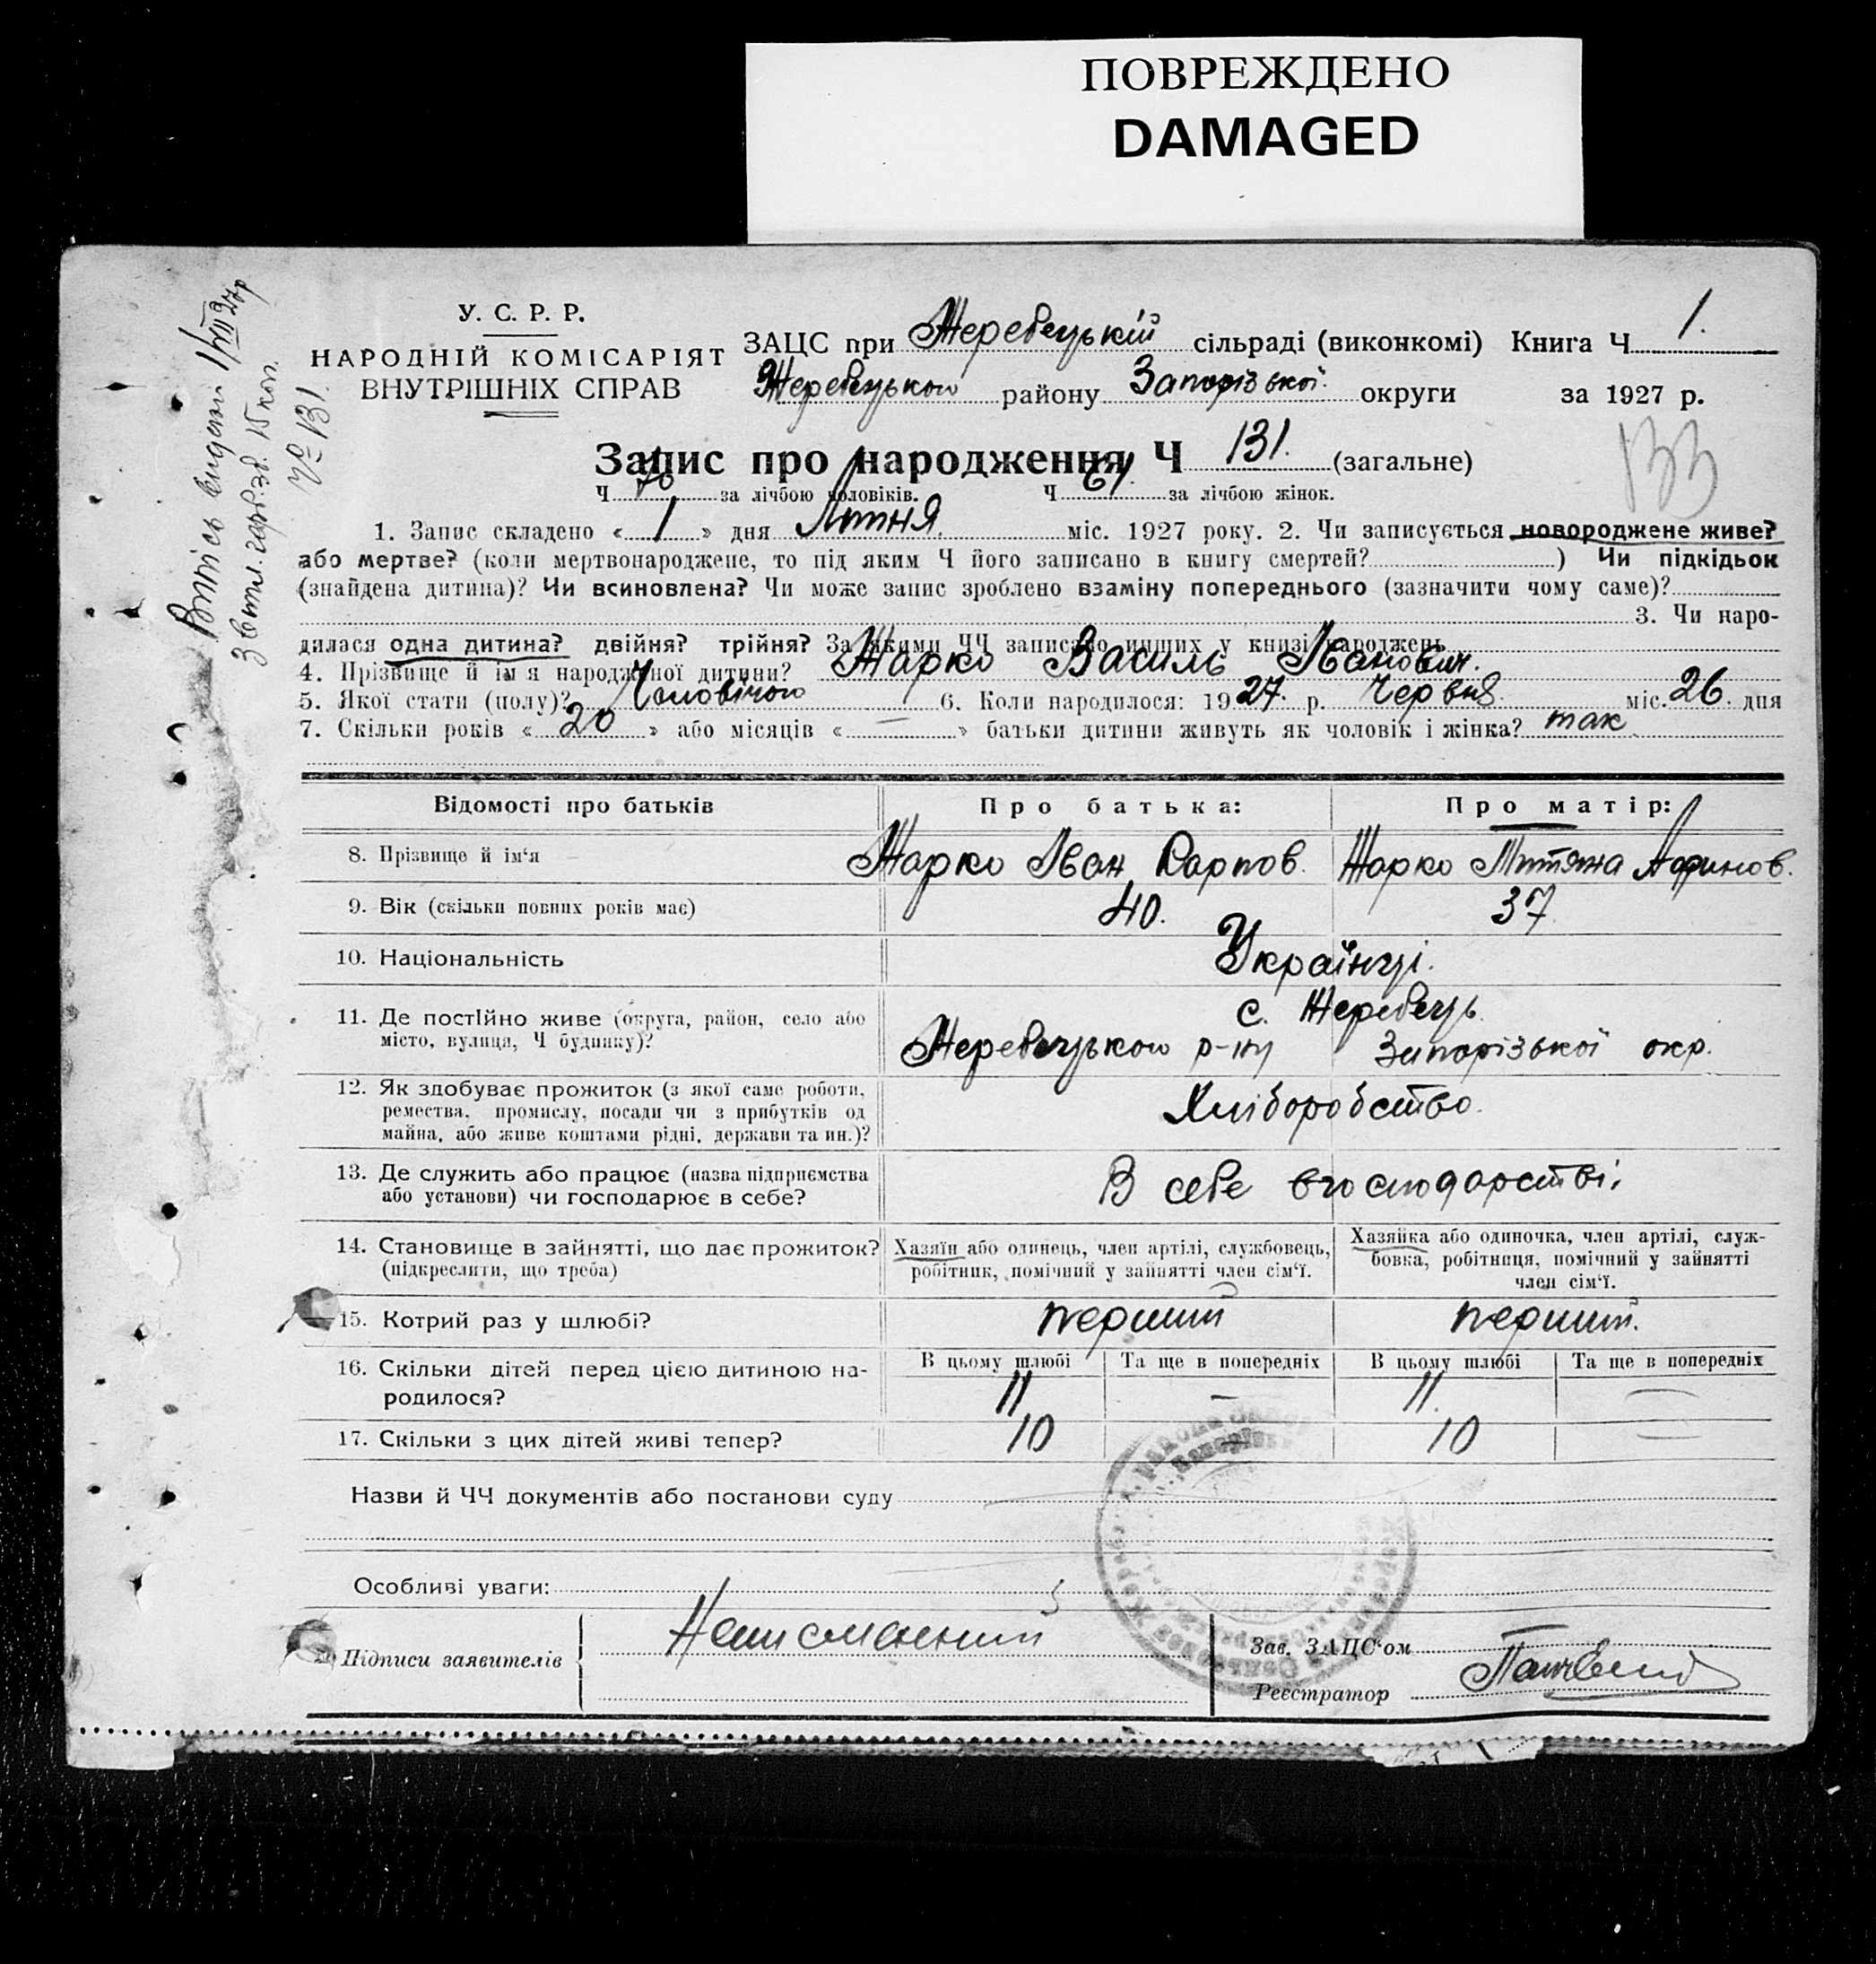 ПОВРЕЖДЕНО
DAMAGED
У. С. Р. Р.
НАРОДНІЙ КОМІСАРІЯТ
ВНУТРІШНІХ СПРАВ
ЗАЦС при Жеребецькій сільраді (виконкомі) Книга Ч 1.
Жеребецького району Запорізької округи за 1927 р.
Випись видана 1/VII 27 р
№ 131.
133
Запис про народження Ч 131. (загальне)
Ч 70 за лічбою чоловіків. Ч 61. за лічбою жінок.
1. Запис складено « 1 » дня Липня міс. 1927 року. 2. Чи записується новороджене живе?
або мертве? (коли мертвонароджене, то під яким Ч його записано в книгу смертей? ) Чи підкідьок
(знайдена дитина)? Чи всиновлена? Чи може запис зроблено взаміну попереднього (зазначити чому саме)?
3. Чи наро-
дилася одна дитина? двійня? трійня? За якими ЧЧ записано инших у книзі народжень
4. Прізвище й ім'я народженої дитини? Жарко Василь Іванович.
5. Якої стати (полу)? Чоловічого 6. Коли народилося: 1927. р. Червня міс. 26. дня
7. Скільки років « 20 » або місяців « — » батьки дитини живуть як чоловік і жінка? так
Відомості про батьків Про батька: Про матір:
8. Прізвище й ім'я Жарко Іван Карпов. Жарко Тетяна
9. Вік (скільки повних років має) 40. 37
10. Національність Українці.
11. Де постійно живе (округа, район, село або
місто, вулиця, Ч будинку)?
с. Жеребець
Жеребецького р-ну Запорізької окр.
12. Як здобуває прожиток (з якої саме роботи,
ремества, промислу, посади чи з прибутків од
майна, або живе коштами рідні, держави та ин.)?
Хліборобство.
13. Де служить або працює (назва підприємства
або установи) чи господарює в себе?
В себе вгосподарстві.
14. Становище в зайнятті, що дає прожиток?
(підкреслити, що треба)
Хазяїн або одинець, член артілі, службовець,
робітник, помічний у зайнятті член сім'ї.
Хазяйка або одиночка, член артілі, служ-
бовка, робітниця, помічний у зайнятті
член сім'ї.
15. Котрий раз у шлюбі? перший перший.
16. Скільки дітей перед цією дитиною на-
родилося?
В цьому шлюбі Та ще в попередніх В цьому шлюбі Та ще в попередніх
11 — 11. —
17. Скільки з цих дітей живі тепер? 10 — 10 —
Назви й ЧЧ документів або постанови суду
Особливі уваги:
Підписи заявителів Неписменний
Зав. ЗАЦС'ом
Реєстратор